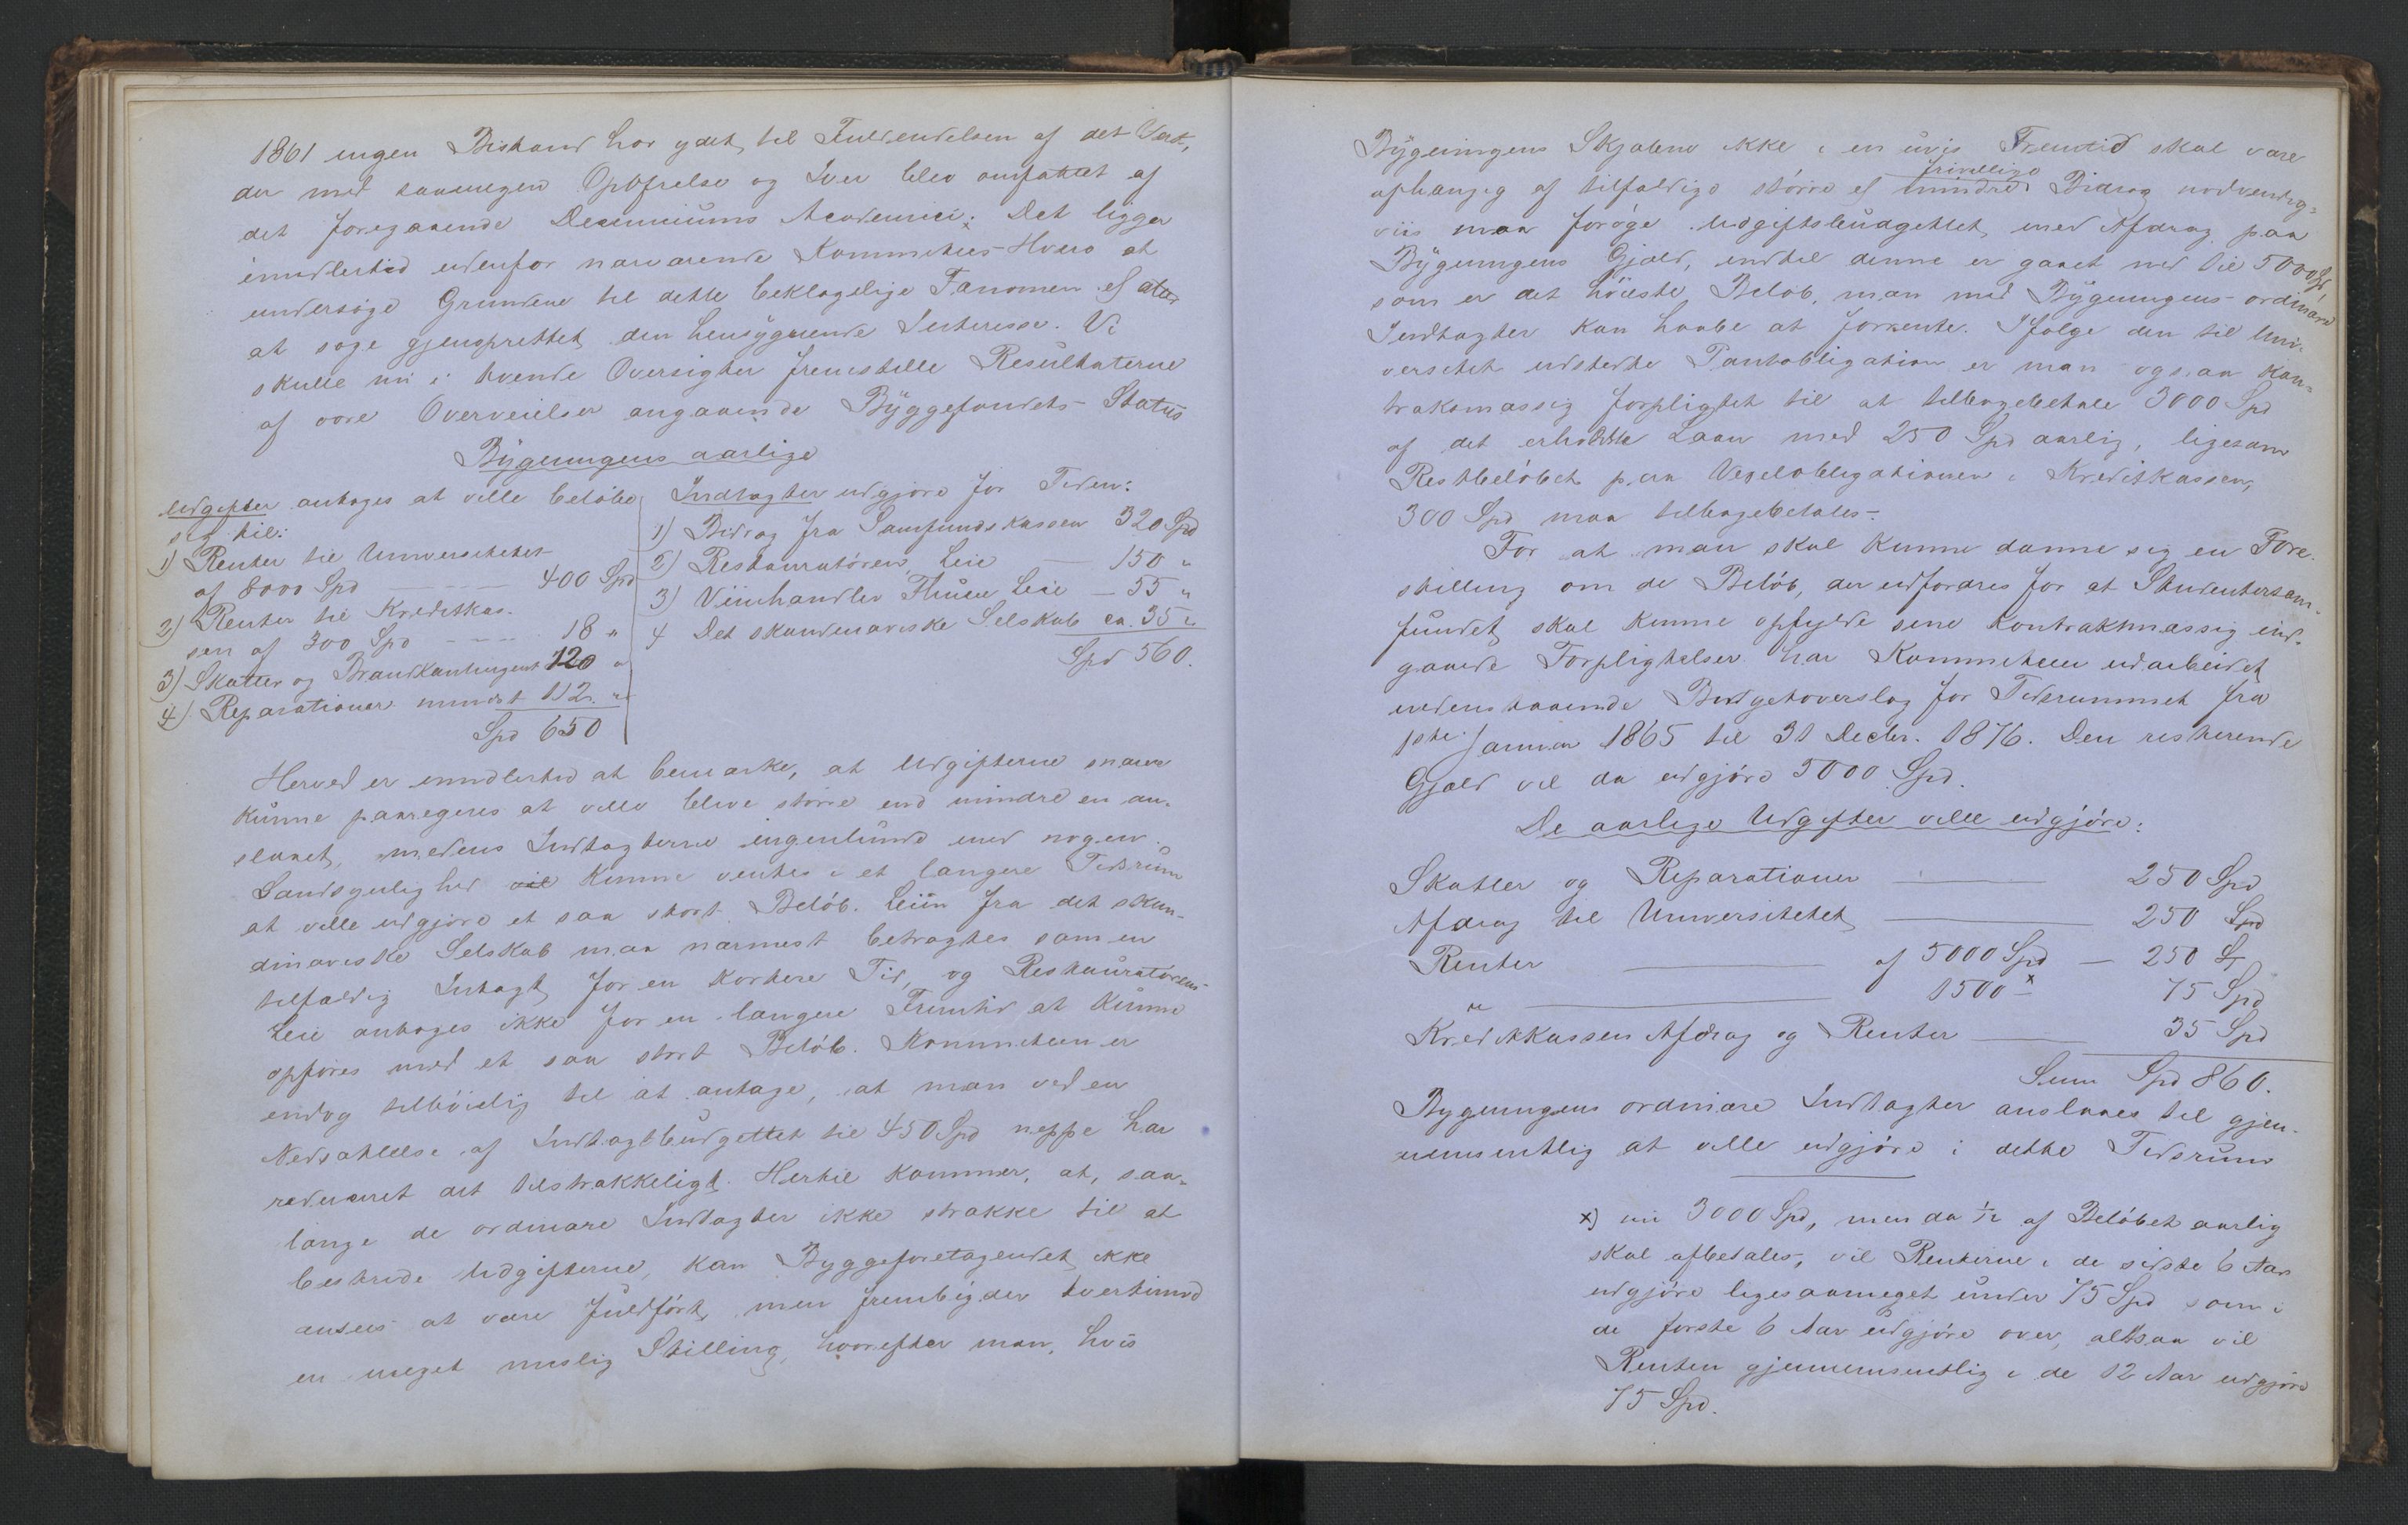 1861 ingen Bistand har ydet til Fuldendelsen af det Værk,
der med saamegen Opofrelse og Iver blev omfattet af
det foregaaende Decenniums Academici. Det ligger
imidlertid udenfor nærværende Kommittees Hverv at
undersøge Grundene til dette beklagelige Fænomen el atter
at søge gjenoprettet den hensygnende Interesse. Vi
skulle nu i tvende Oversigter fremstille Resultaterne
af vore Overveielser angaaende Byggefondets Status
Bygningens aarlige
Udgifter antages at ville beløbe
sig til:
1) Renter til Universitetet
af 8000 Spd — 400 Spd
2) Renter til Kreditkas-
sen af 300 Spd — 18 "
3) Skatter og Brandkontingent 120 "
4) Reparationer mindst 112 "
Spd 650
Indtægter udgjøre for Tiden:
1) Bidrag fra Samfundskassen 320 Spd
2) Restauratørens Leie — 150 "
3) Viinhandler Thuess Leie — 55 "
4 Det skandinaviske Selskab ca. 35 "
Spd 560.
Herved er imidlertid at bemærke, at Udgifterne snarere
kunne paaregnes at ville blive større end mindre en an-
slaaet, medens Indtægterne ingenlunde med nogen
Sandsynlighed vil kunne ventes i et længere Tidsrum
at ville udgjøre et saa stort Beløb. Leien fra det skan-
dinaviske Selskab maa nærmest betragtes som en
tilfældig Intægt for en kortere Tid, og Restauratørens
Leie antages ikke for en længere Fremtid at kunne
opføres med et saa stort Beløb. Kommitteen er
endog tilbøielig til at antage, at man ved en
Nedsættelse af Indtægtbudgettet til 450 Spd neppe har
reduceret det tilstrækkeligt. Hertil kommer, at, saa-
længe de ordinære Indtægter ikke strække til at
bestride Udgifterne, kan Byggeforetagendet ikke
ansees at være fuldført, men frembyder tvertimod
en meget misslig Stilling, hvorefter man, hvis
Bygningens Skjæbne ikke i en uvis Fremtid skal være
frivillige
afhængig af tilfældige større el mindre Bidrag nødvendig-
viis maa forøge Udgiftsbudgettet med Afdrag paa
Bygningens Gjæld, indtil denne er gaaet ned til 5000 Spd
som er det høieste Beløb, man med Bygningens ordinære
Indtægter kan haabe at forrente. Ifølge den til Uni-
versitetet udstedte Pantobligation er man ogsaa kon-
traktsmæssig forpligtet til at tilbagebetale 3000 Spd
af det erholdte Laan med 250 Spd aarlig, ligesom
Restbeløbet paa Vexelobligationen i Kreditkassen,
300 Spd maa tilbagebetales.
For at man skal kunne danne sig en Fore
stilling om de Beløb, der udfordres for at Studentersam-
fundet skal kunne opfylde sine kontraktmæssig ind-
gaaede Forpligtelser har Kommiteen udarbeidet
nedenstaaende Budgetoverslag for Tidsrummet fra
1ste Januar 1865 til 31 Decbr. 1876. Den resterende
Gjæld vil da udgjøre 5000 Spd.
De aarlige Udgifter ville udgjøre:
Skatter og Reparationer — 250 Spd
Afdrag til Universitetet — 250 Spd
Renter — af 5000 Spd — 250 Sp
" — 1500 x — 75 Spd
Kreditkassen Afdrag og Renter — 35 Spd
Sum Spd 860.
Bygningens ordinære Indtægter anslaaes til gjen-
nemsnitlig at ville udgjøre i dette Tidsrum
x) nu 3000 Spd, men da 1/12 af Beløbet aarlig
skal afbetales, vil Renterne i de sidste 6 Aar
udgjøre ligesaameget under 75 Spd som i
de første 6 Aar udgjøre over, altsaa vil
Renten gjennemsnitlig i de 12 Aar udgjøre
75 Spd.